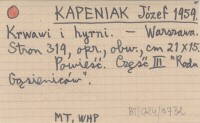 KAPENIAK Józef 1959.
Krwawi i hyrni. – Warszawa.
Stron 319, opr., obw., cm 21x15.
Powieść. Część III "Rodu
Gąsieniców".
MT, WHP